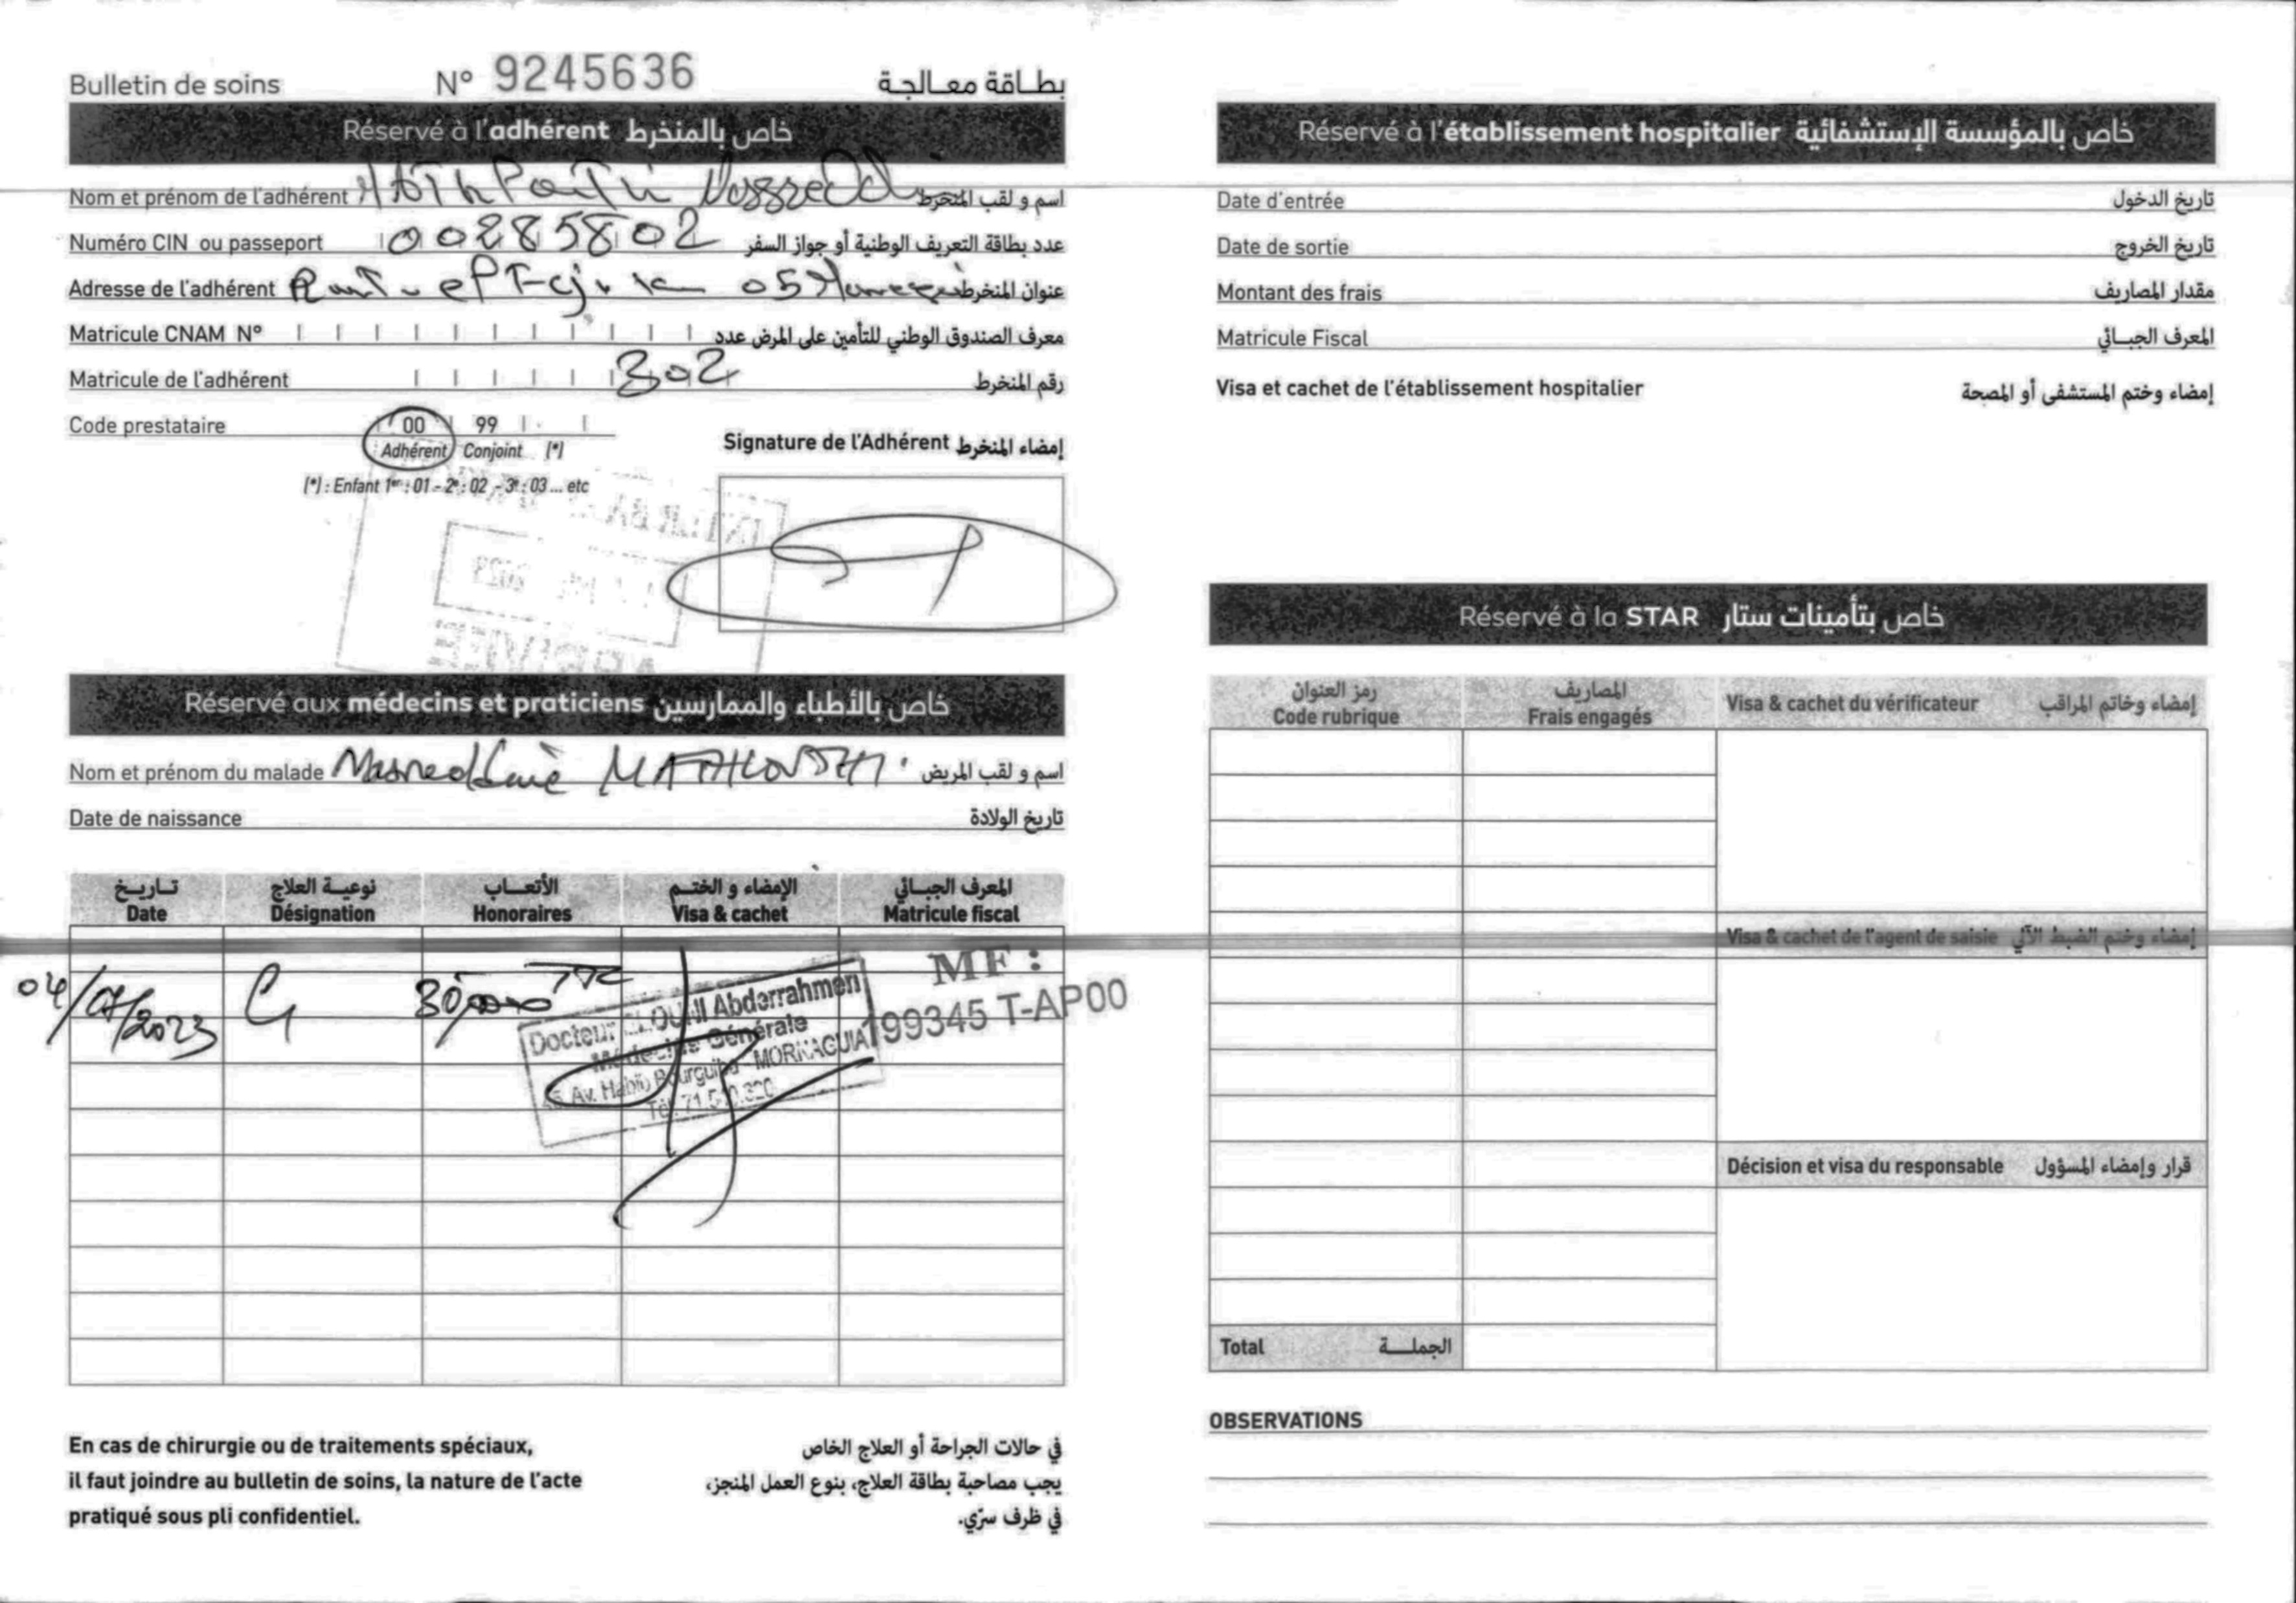 Bulletin de soins N° 9245636 بطاقة معالجة
Réservé à l'adhérent خاص بالمنخرط
Nom et prénom de l'adhérent اسم و لقب المنخرط
Numéro CIN ou passeport 00285802 عدد بطاقة التعريف الوطنية أو جواز السفر
Adresse de l'adhérent 05 عنوان المنخرط
Matricule CNAM N° معرف الصندوق الوطني للتأمين على المرض عدد
Matricule de l'adhérent 302 رقم المنخرط
Code prestataire 00 99
Adhérent Conjoint (*)
(*) : Enfant 1er : 01 - 2e : 02 - 3e : 03 ... etc
Signature de l'Adhérent إمضاء المنخرط
Réservé aux médecins et praticiens خاص بالأطباء والممارسين
Nom et prénom du malade اسم و لقب المريض
Date de naissance تاريخ الولادة
تاريخ نوعية العلاج الأتعاب الإمضاء و الختم المعرف الجبائي
Date Désignation Honoraires Visa & cachet Matricule fiscal
04/07/2023 C1
Docteur Abderrahmen
Médecine Générale
Av. Habib Bourguiba - MORNAGUIA
MF :
199345 T-AP00
En cas de chirurgie ou de traitements spéciaux,
il faut joindre au bulletin de soins, la nature de l'acte
pratiqué sous pli confidentiel.
في حالات الجراحة أو العلاج الخاص
يجب مصاحبة بطاقة العلاج، بنوع العمل المنجز،
في ظرف سرّي.
Réservé à l'établissement hospitalier خاص بالمؤسسة الإستشفائية
Date d'entrée تاريخ الدخول
Date de sortie تاريخ الخروج
Montant des frais مقدار المصاريف
Matricule Fiscal المعرف الجبائي
Visa et cachet de l'établissement hospitalier إمضاء وختم المستشفى أو المصحة
Réservé à la STAR خاص بتأمينات ستار
رمز العنوان المصاريف
Code rubrique Frais engagés
Visa & cachet du vérificateur إمضاء وخاتم المراقب
Visa & cachet de l'agent de saisie إمضاء وختم الضبط الآلي
Décision et visa du responsable قرار وإمضاء المسؤول
Total الجملة
OBSERVATIONS